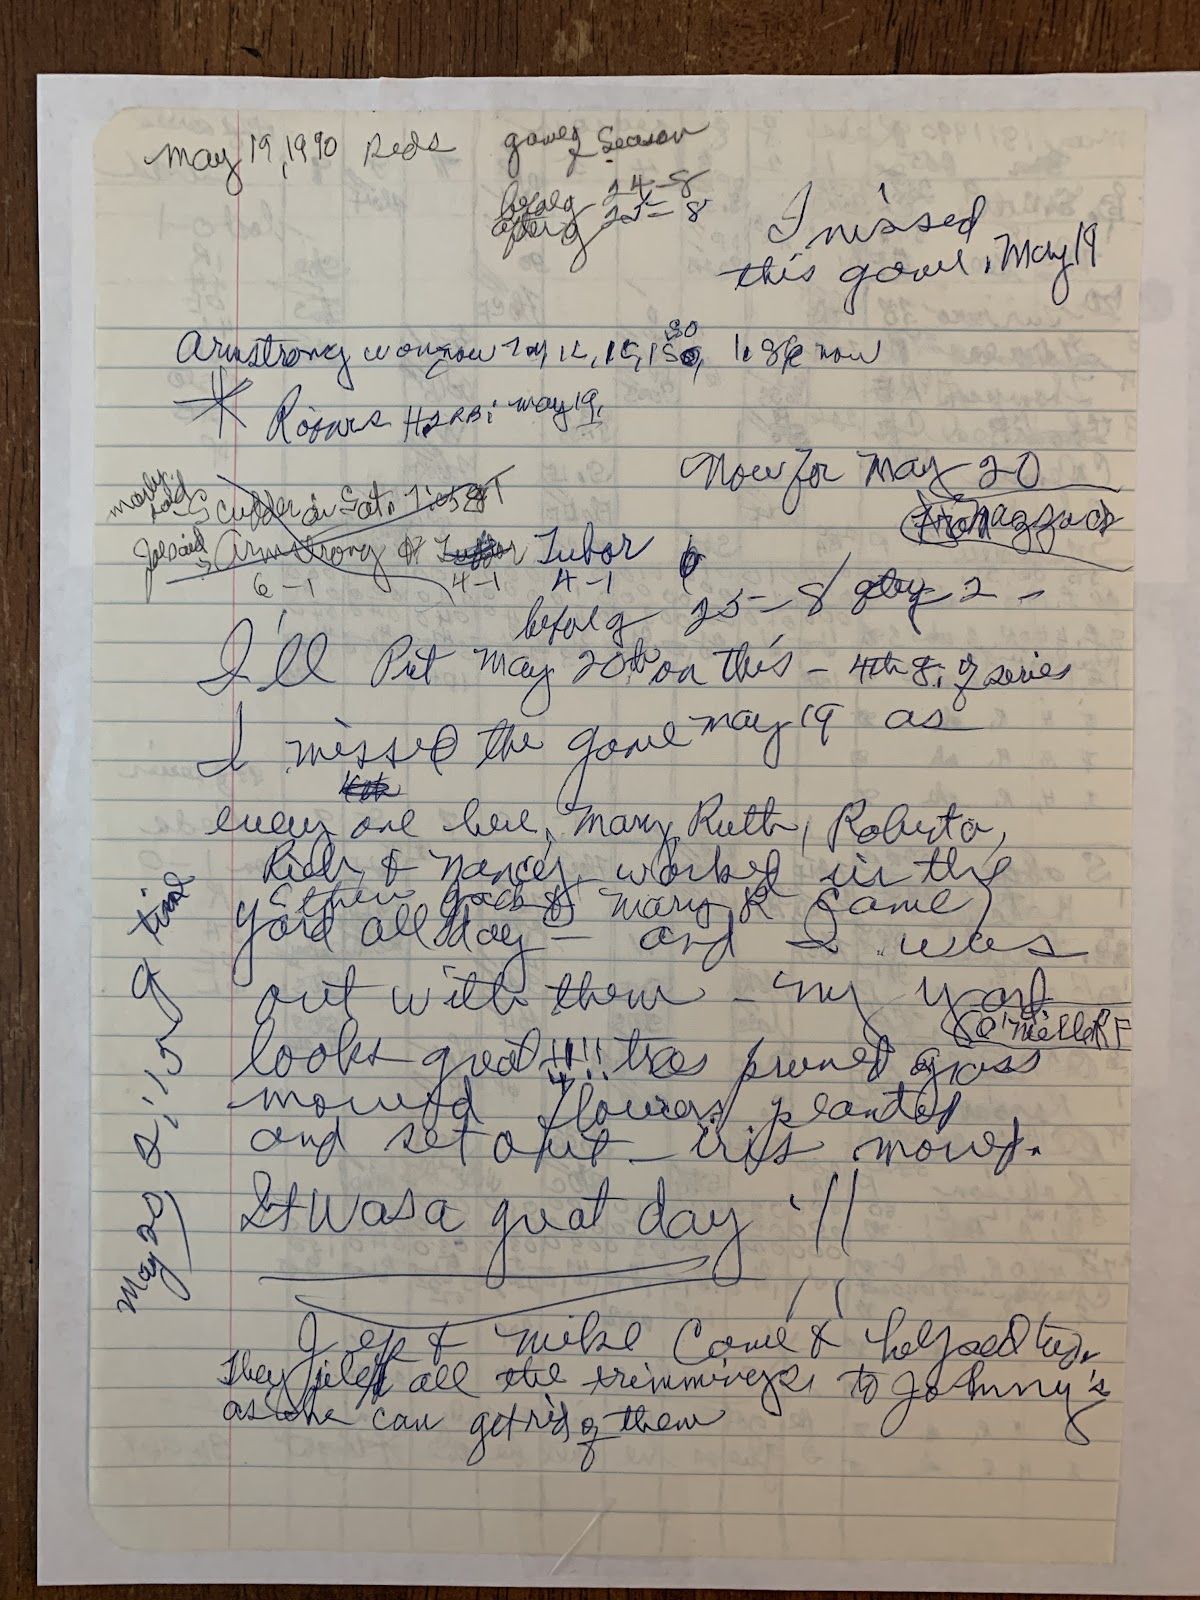 May 19, 1990 Reds
games
& Season
before g 24-8
after g 25-8
I missed
this game, May 19
Armstrong won now 7 of
SO
1.86 now
* May 19,
Now for May 20
Marty said Scudder on Sat.
Joe said Armstrong or Tudor
6-1 4-1 4-1
before g 25-8 after g 2 -
I'll Put May 20th on this - 4th g. of series
I missed the game May 19 as
every one here, Mary Ruth, Roberta,
Rich & Nancy worked in the
Then Jack & Mary R Came
yard all day - and I was
out with them - my yard
O'Neill RF
looks great !!!! trees pruned grass
mowed flowers planted
and set out - iris moved.
It was a great day !!
Jep & Mike Came & helped too,
They piled all the trimmings to Johnny's
as one can get rid of them
May 20, 2:15 g time